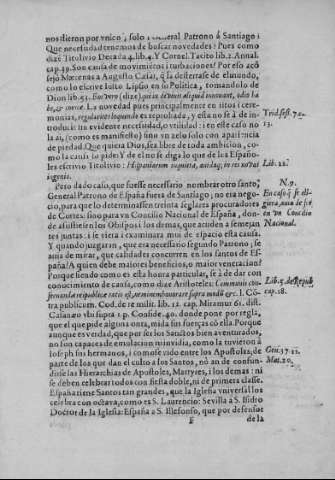 nos dieron por vnico, solo i General Patrono á Santiago i
Que necesidad tenemos de buscar novedades? Pues como
dize Titolivio Decada 4. lib. 4. Y Cornel. Tacito lib. 2. Annal.
cap. 39. Son causa de movimiẽtos i turbaciones? Por esso acõ
sejo Mecenas a Augusto Cæsar, q̃ las desterrase de el mundo,
como lo escrive Iusto Lipsio en su Politica, tomandolo de
Dion lib. 52. (dize) quia in divinis aliquid innovant, odio ha
be, & coerce. La novedad pues principalmente en ritos i cere-
monias, regularitèr loquendo es reprobada, y esta no se à de in-
troducir sin evidente necesidad, o vtilidad: i en este caso no la
ai, (como es manifiesto) sino vn zelo solo con aparencia
de piedad. Que quiera Dios, sea libre de toda ambicion, co-
mo la causa lo pide Y de el no se diga lo que de los Españo-
les escrivio Titolivio: Hispanorum inquieta, avidaq; in res novas
ingenia.
Trid. sess. 7.
13.
Lib. 22.
Pero dado caso, que fuese necesario nombrar otro santo,
General Patrono de España fuera de Santiago, no era nego-
cio, para que lo determinassen treinta seglares procuradores
de Cortes: sino para vn Concilio Nacional de España, don-
de asistiesen los Obispos i los demas, que acuden a semejan
tes juntas: i se viera i examinara mui de espacio esta causa.
Y quando juzgaran, que era necesario segundo Patrono; se
avia de mirar, que calidades concurren en los santos de Es-
paña? A quien debe maiores beneficios, o maior veneracion?
Porque siendo como es esta honra particular, se à de dar con
conocimiento de causa, como dize Aristoteles: Communis con-
N. 9.
En caso q̃ se eli-
giera, avia de ser
en vn Concilio
Nacional.
Lib. 5. de Repub.
cap. 18.
trapublicam. Cod. de re milit. lib. 12. cap. Miramur 61. dist.
Casanæo vbi supra 1. p. Conside. 40. donde pone por regla,
que el que pide alguna onra, mida sus fuerças cõ ella. Porque
aunque es verdad, que por ser los Santos bien aventurados,
no son capaces de emulacion ni invidia, como la tuvieron á
Ioseph sus hermanos, i o menos vido entre los Apostoles, de
parte de los que dan el culto a los Santos, nõ an de confun-
dir se las Hierarchias de Apostoles, Martyres, i los demas: ni
se deben celebrar todos con fiesta doble, ni de primera classe.
España tiene Santos tan grandes, que la Iglesia vniversal los
celebra con octava, como es S. Laurencio: Sevilla à S. Isidro
Doctor de la Iglesia: España a S. Ilefonso, que por defensor
Gen. 37. 11.
Mat. 20.
de la